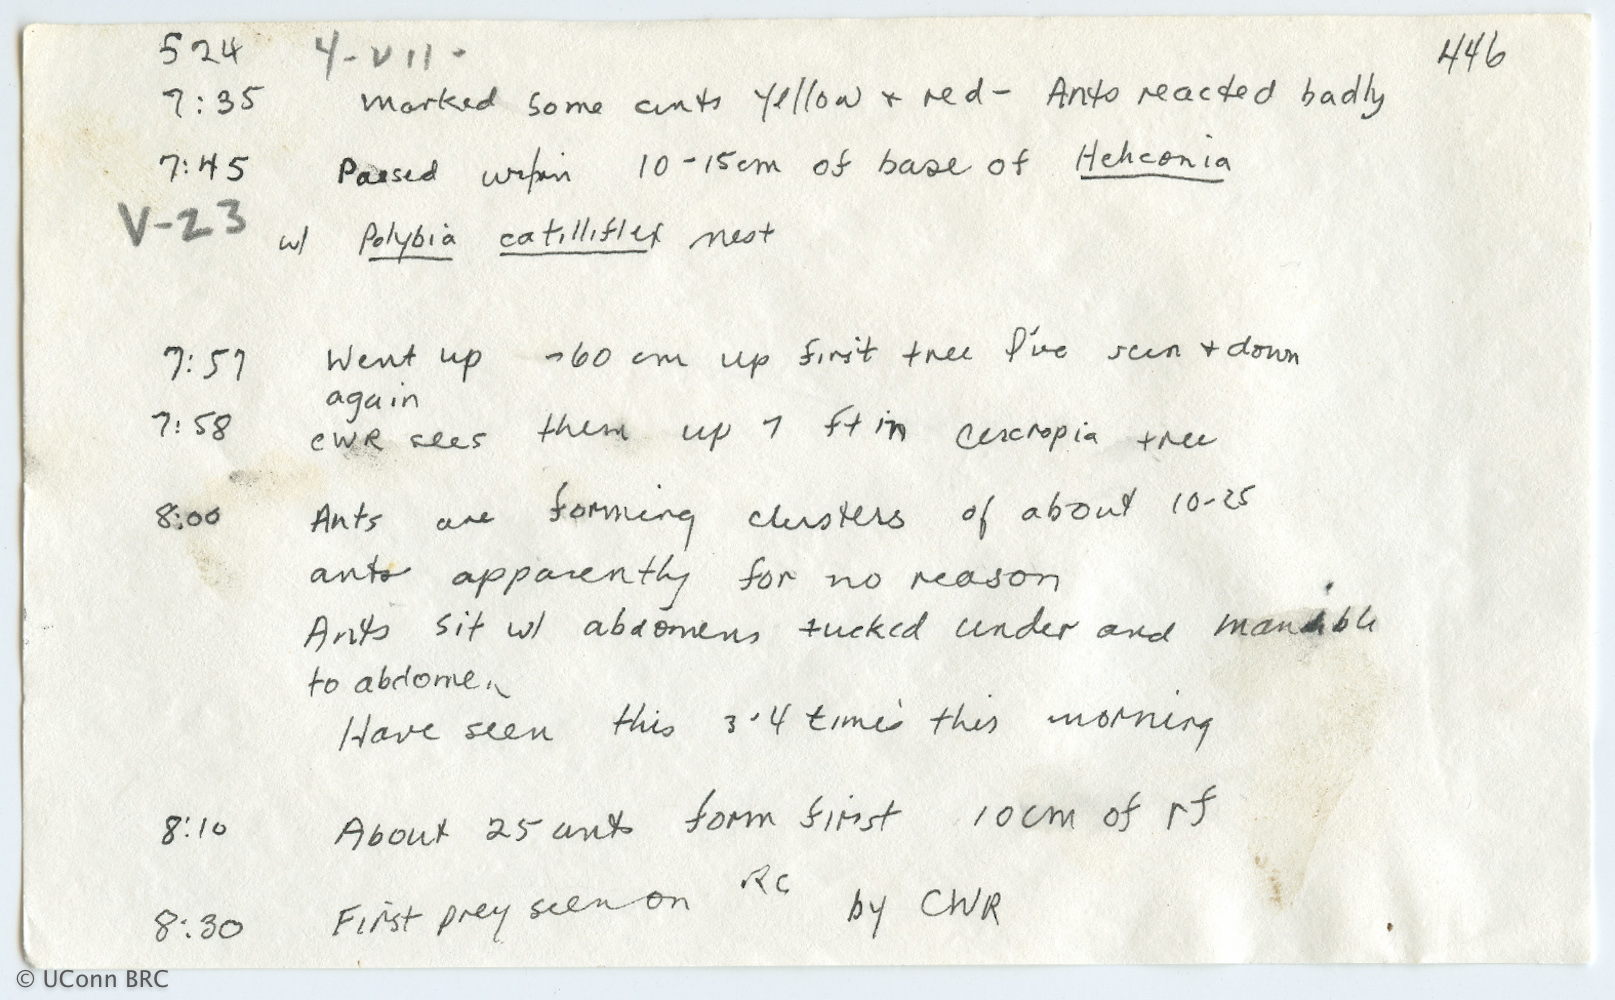 524 4-VII- 446
7:35 Marked some ants yellow + red - Ants reacted badly
7:45 Passed w/in 10-15cm of base of Heliconia
V-23 w/ Polybia catilliflex nest
7:57 Went up ~60 cm up first tree I've seen + down
again
7:58 CWR sees them up 7 ft in Cercropia tree
8:00 Ants are forming clusters of about 10-25
ants apparently for no reason
Ants sit w/ abdomens tucked under and mandible
to abdomen
Have seen this 3-4 times this morning
8:10 About 25 ants form first 10cm of rf
8:30 First prey seen on RC by CWR
© UConn BRC